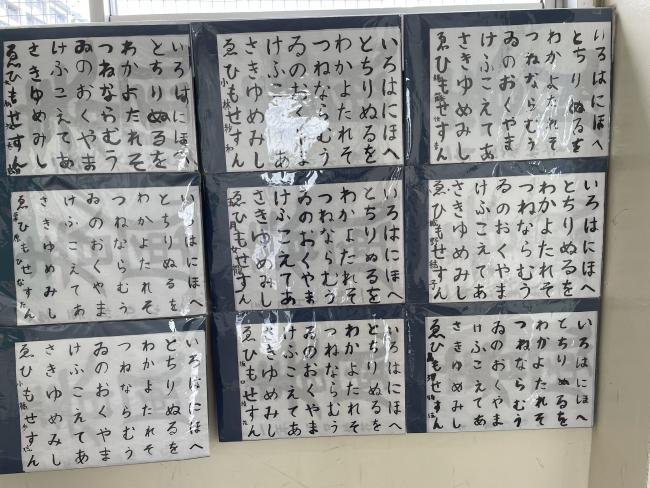 いろはにほへ
とちりぬるを
わかよたれそ
つねならむう
ゐのおくやま
けふこえてあ
さきゆめみし
ゑひもせすん
いろはにほへ
とちりぬるを
わかよたれそ
つねならむう
ゐのおくやま
けふこえてあ
さきゆめみし
ゑひもせすん
いろはにほへ
とちりぬるを
わかよたれそ
つねならむう
ゐのおくやま
けふこえてあ
さきゆめみし
ゑひもせすん
いろはにほへ
とちりぬるを
わかよたれそ
つねならむう
ゐのおくやま
けふこえてあ
さきゆめみし
ゑひもせすん
いろはにほへ
とちりぬるを
わかよたれそ
つねならむう
ゐのおくやま
けふこえてあ
さきゆめみし
ゑひもせすん
いろはにほへ
とちりぬるを
わかよたれそ
つねならむう
ゐのおくやま
けふこえてあ
さきゆめみし
ゑひもせすん
いろはにほへ
とちりぬるを
わかよたれそ
つねならむう
ゐのおくやま
けふこえてあ
さきゆめみし
ゑひもせすん
いろはにほへ
とちりぬるを
わかよたれそ
つねならむう
ゐのおくやま
けふこえてあ
さきゆめみし
ゑひもせすん
いろはにほへ
とちりぬるを
わかよたれそ
つねならむう
ゐのおくやま
けふこえてあ
さきゆめみし
ゑひもせすん